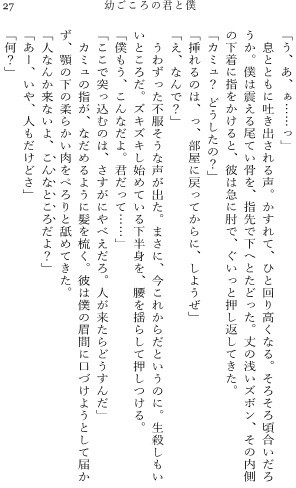 27
幼ごころの君と僕
「う、あ、ぁ……っ」
　息とともに吐き出される声。かすれて、ひと回り高くなる。そろそろ頃合いだろ
うか。僕は震える尾てい骨を、指先で下へとたどった。丈の浅いズボン、その内側
の下着に指をかけると、彼は急に肘で、ぐいっと押し返してきた。
「カミュ？　どうしたの？」
「挿れるのは、っ、部屋に戻ってからに、しようぜ」
「え、なんで？」
　うわずった不服そうな声が出た。まさに、今これからだというのに。生殺しもい
いところだ。ズキズキし始めている下半身を、腰を揺らして押しつける。
「僕もう、こんなだよ。君だって……」
「ここで突っ込むのは、さすがにやべえだろ。人が来たらどうすんだ」
　カミュの指が、なだめるように髪を梳く。彼は僕の眉間に口づけようとして届か
ず、顎の下の柔らかい肉をべろりと舐めてきた。
「人なんか来ないよ、こんなところだよ？」
「あー、いや、人もだけどさ」
「何？」